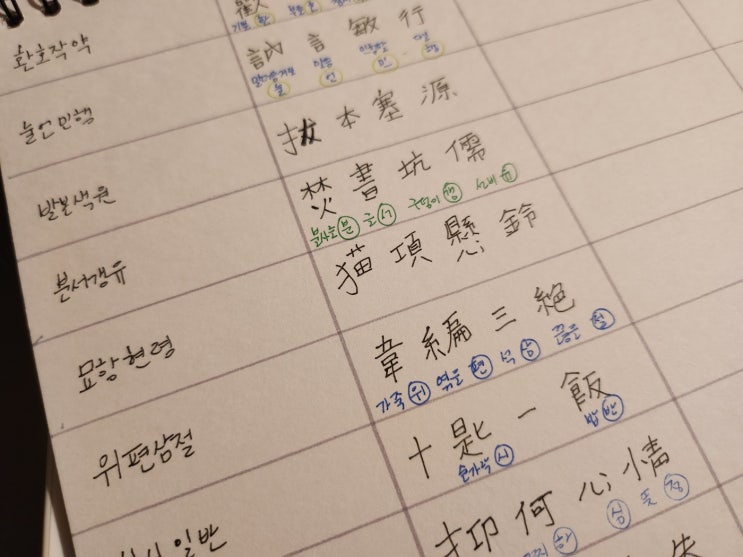 환호작약
기쁠 환
訥言敏行
말더듬거릴 눌 말씀 언 민첩할 민 다닐 행
눌언민행
拔本塞源
발본색원
焚書坑儒
불사를 분 글 서 구덩이 갱 선비 유
분서갱유
猫項懸鈴
묘항현령
韋編三絶
가죽 위 엮을 편 석 삼 끊을 절
위편삼절
十匙一飯
숟가락 시 밥 반
십시일반
抑何心情
어찌 하 심 뜻 정
失